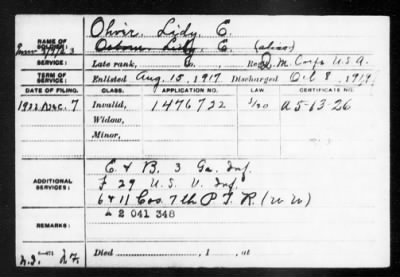 Olvir, Lidy, E.
NAME OF SOLDIER: Osborn, Lidy, E. (alias)
SERVICE: Late rank, Reg. Q. M. Corps U.S.A.
TERM OF SERVICE: Enlisted Aug. 15, 1917 Discharged Oct 8, 1919
DATE OF FILING. CLASS. APPLICATION NO. LAW. CERTIFICATE NO.
1922 Dec. 7 Invalid, 1476722 A 5-13-26
Widow,
Minor,
ADDITIONAL SERVICES: E & B. 3 Ga. Inf.
F 29 U. S. V. Inf.
6 & 11 Cos. 7th P. T. R. (W W)
A 2 041 348
REMARKS:
Died , 1 , at